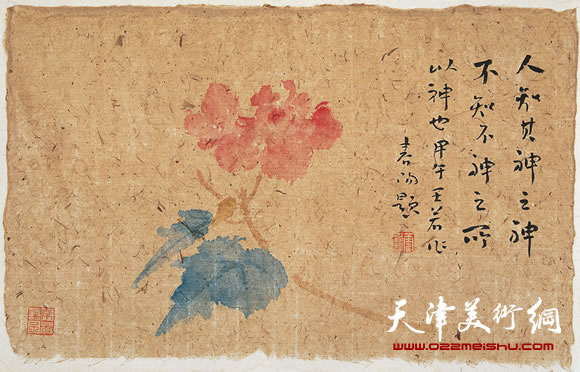 人知其神之神
不知不神之所
以神也甲午王若作
春阳題
天津美術網
www.022meishu.com